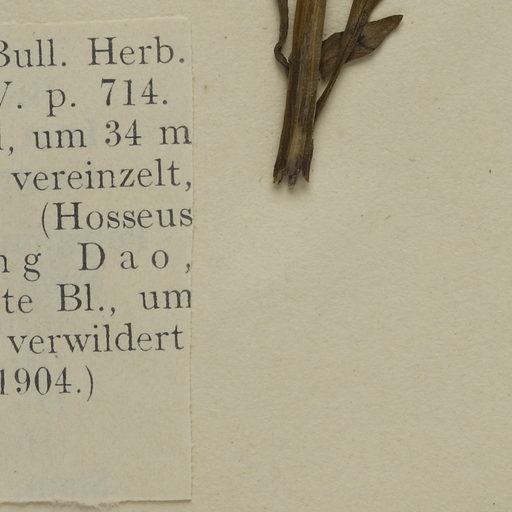 Bull. Herb.
V. p. 714.
, um 34 m
vereinzelt,
(Hosseus
ng Dao,
te Bl., um
verwildert
1904.)